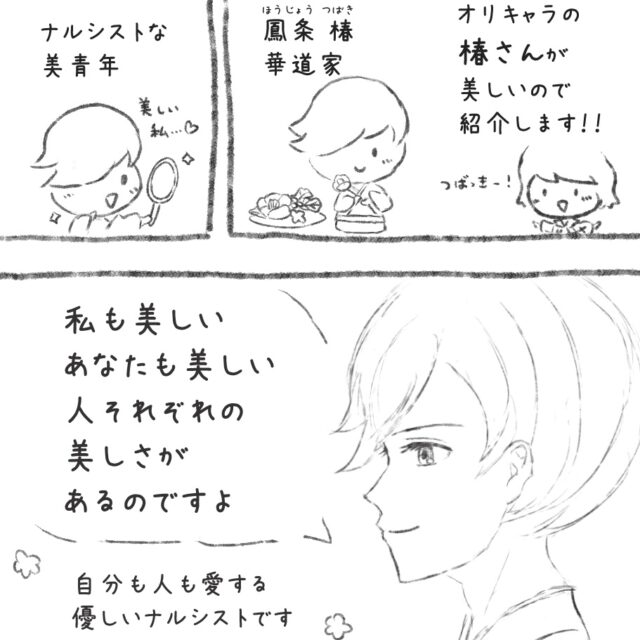 オリキャラの
椿さんが
美しいので
紹介します!!
つばっきー!
ほうじょう つばき
鳳条 椿
華道家
ナルシストな
美青年
美しい
私…♡
私も美しい
あなたも美しい
人それぞれの
美しさが
あるのですよ
自分も人も愛する
優しいナルシストです